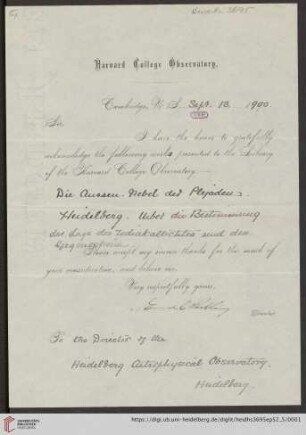 Harvard College Observatory.
Cambridge, U. S. Sept. 18 1900
Sir,
I have the honor to gratefully
acknowledge the following works presented to the Library
of the Harvard College Observatory:—
Die Aussen-Nebel der Plejaden.
Heidelberg. Ueber die Bestimmung
der Lage des Zodiakallichtes und den
Gegenschein.
Please accept my sincere thanks for the work of
your and believe me,
Very respectfully yours,
Director
To the Director of the
Heidelberg Astrophysical Observatory,
Heidelberg.
https://digi.ub.uni-heidelberg.de/diglit/heidhs3695ep52_5/0001